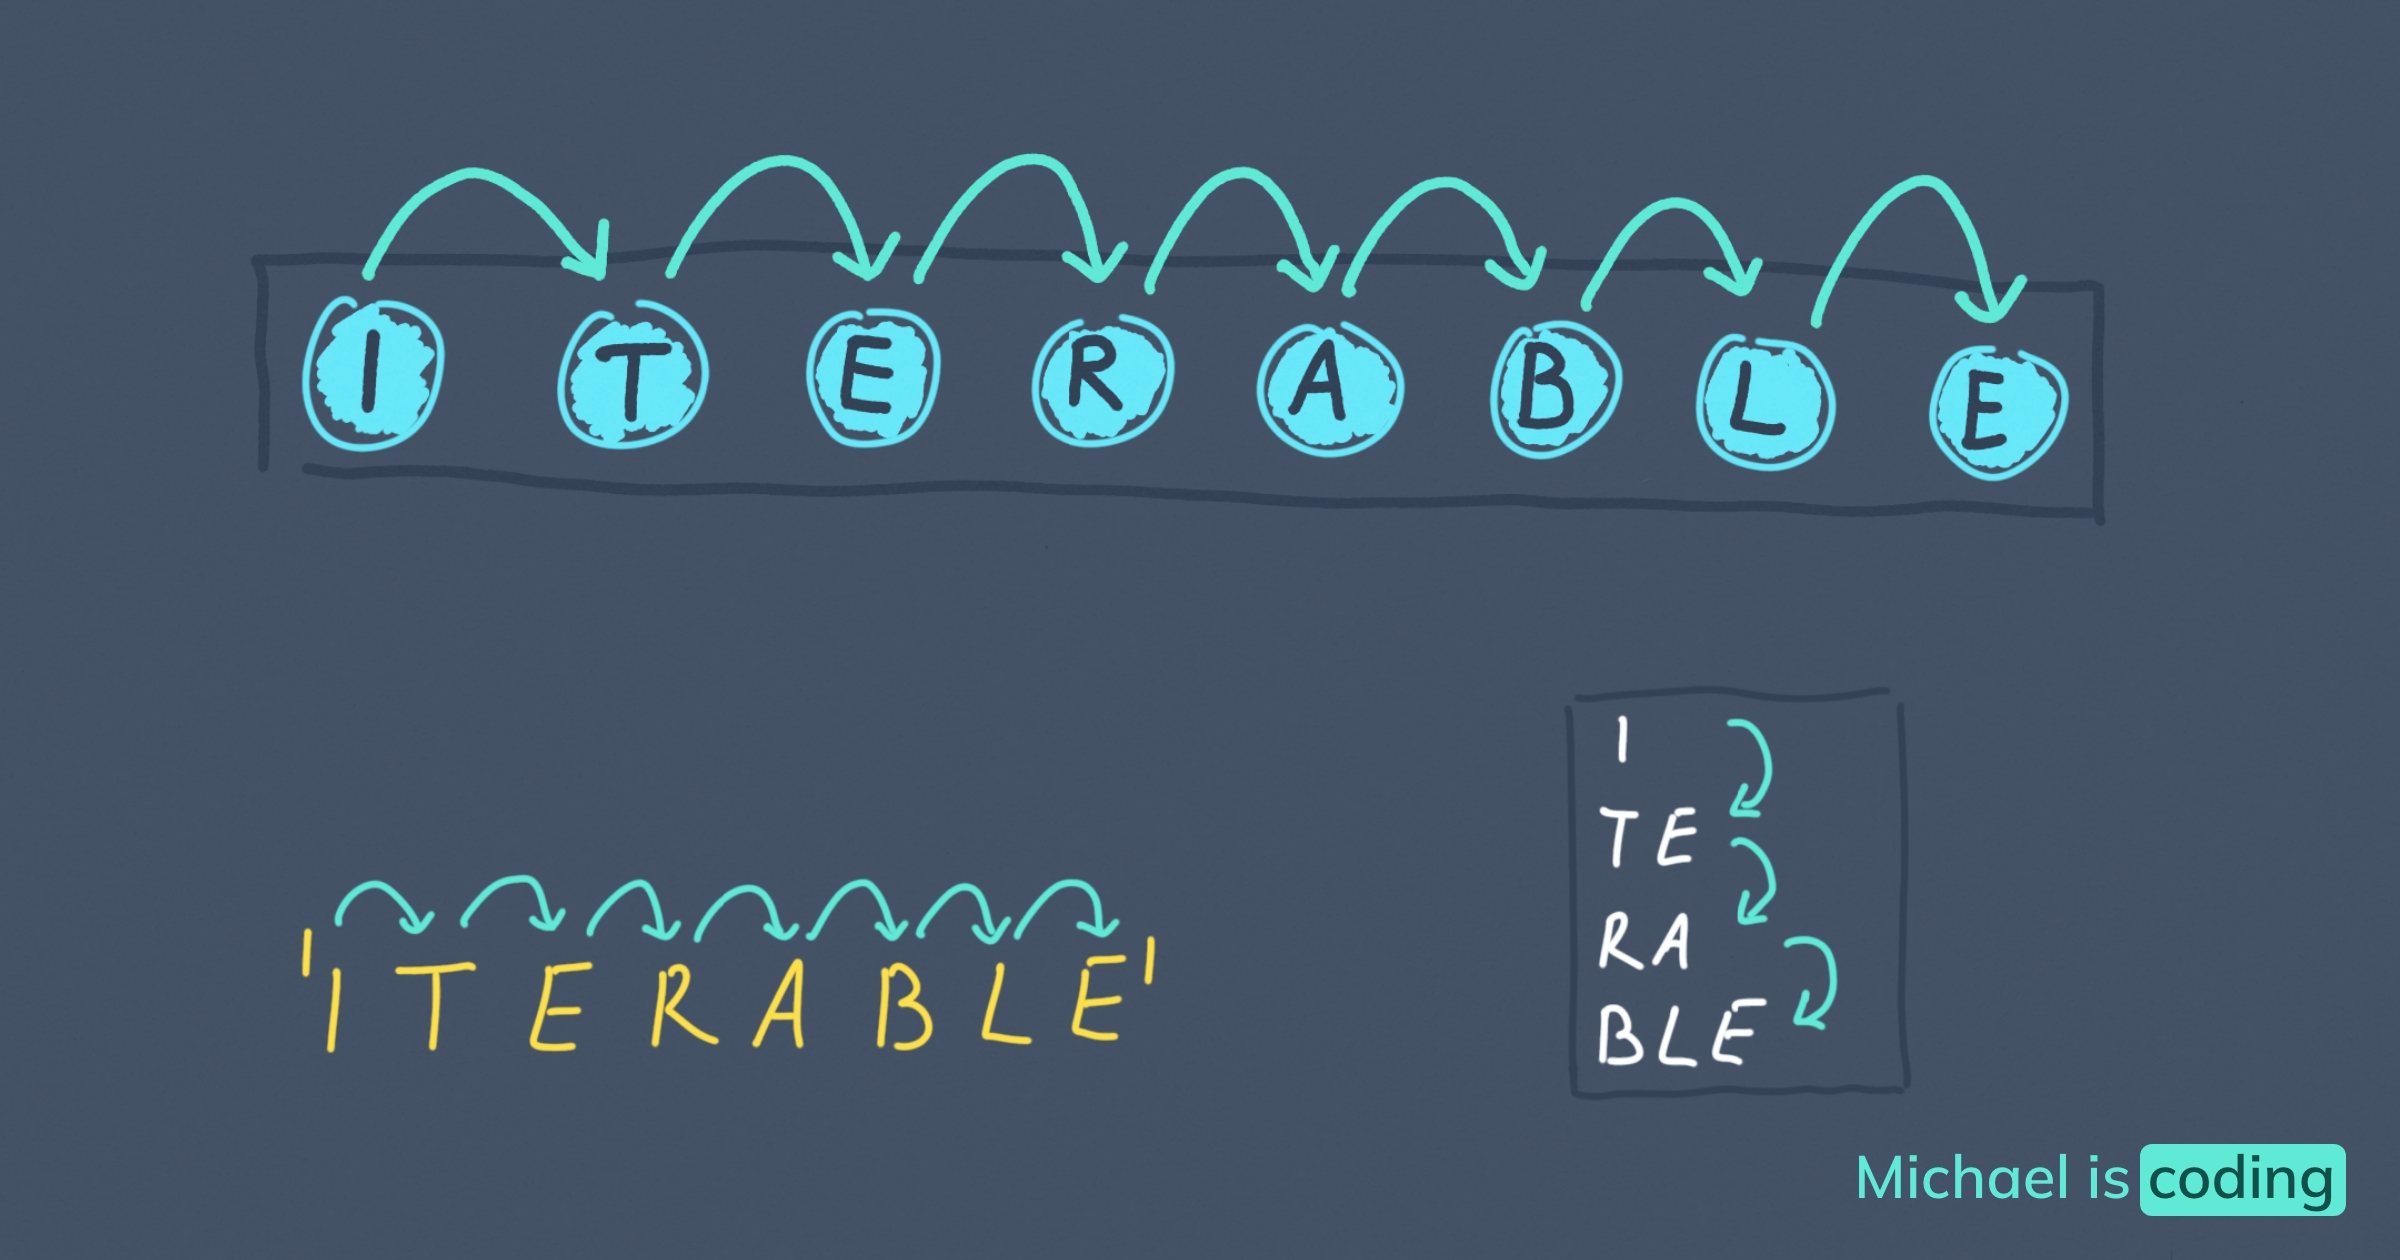 I T E R A B L E
'ITERABLE'
I
TE
RA
BLE
Michael is coding